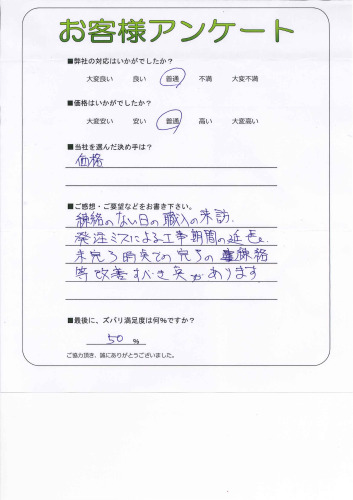 お客様アンケート
■弊社の対応はいかがでしたか？
大変良い 良い 普通 不満 大変不満
■価格はいかがでしたか？
大変安い 安い 普通 高い 大変高い
■当社を選んだ決め手は？
価格
■ご感想・ご要望などをお書き下さい。
連絡のない日の職人の来訪、
発注ミスによる工事期間の延長、
未完了時点での完了の連絡
等改善すべき点があります
■最後に、ズバリ満足度は何％ですか？
50 ％
ご協力頂き、誠にありがとうございました。